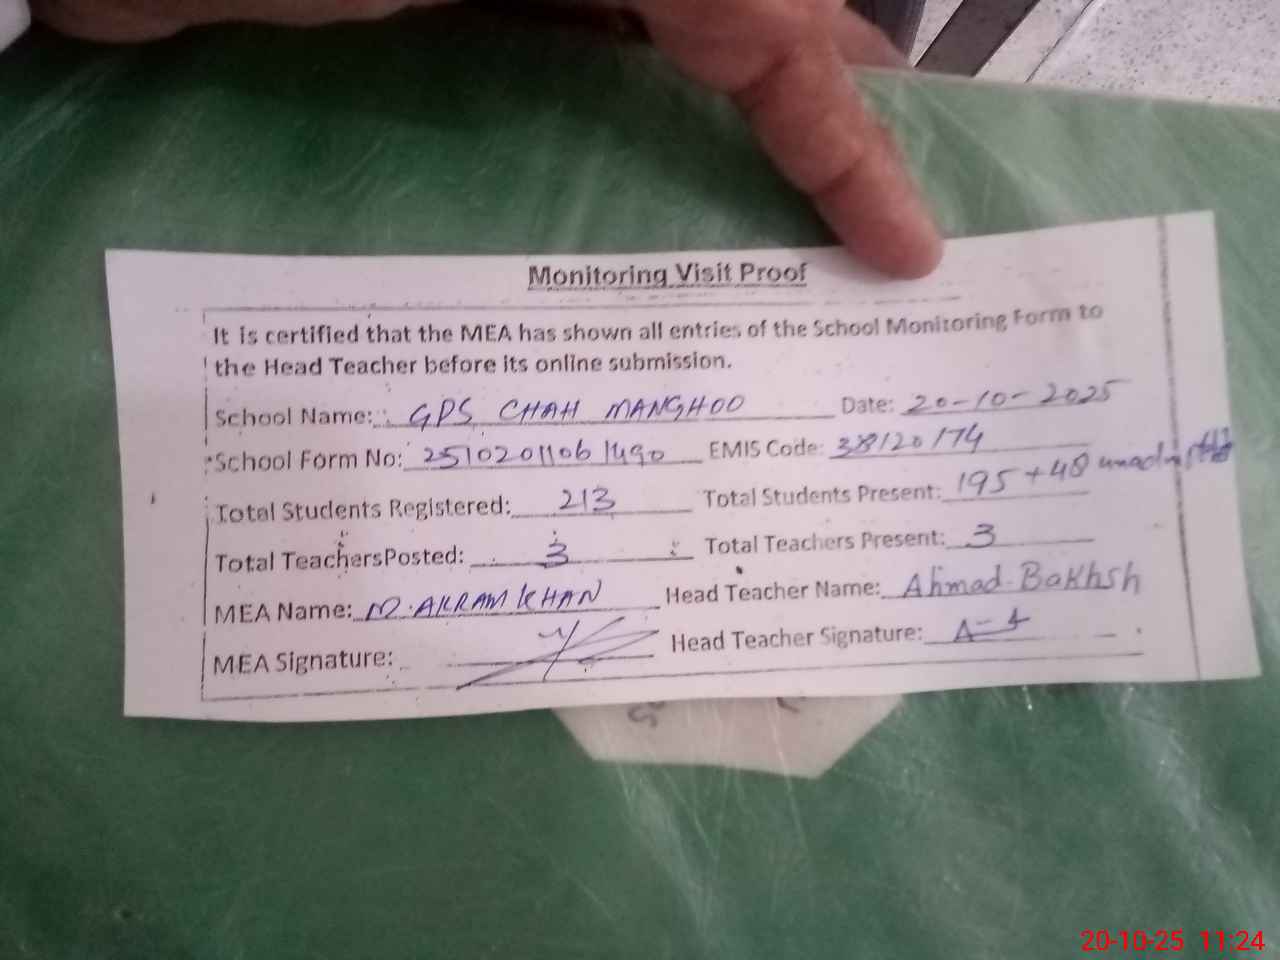 Monitoring Visit Proof
It is certified that the MEA has shown all entries of the School Monitoring Form to
the Head Teacher before its online submission.
School Name: GPS CHAH MANGHOO Date: 20-10-2025
School Form No: 25102011061490 EMIS Code: 38120174
Total Students Registered: 213 Total Students Present: 195 + 48
Total TeachersPosted: 3 Total Teachers Present: 3
MEA Name: M. AKRAM KHAN Head Teacher Name: Ahmad Bakhsh
MEA Signature: Head Teacher Signature:
20-10-25 11:24